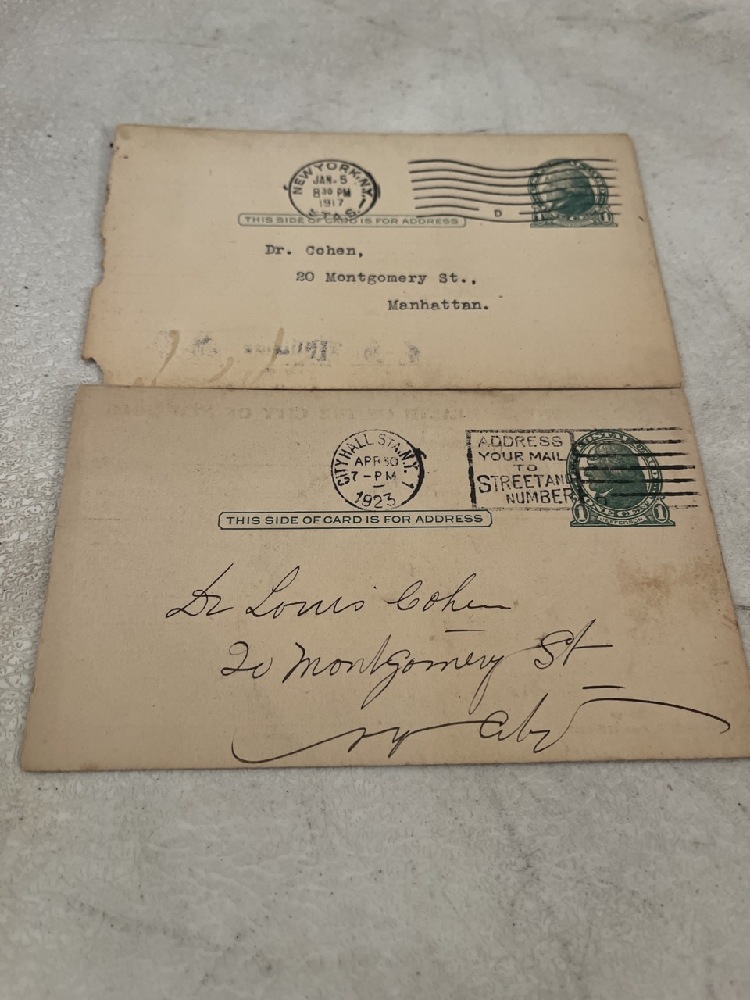 NEW YORK, N.Y.
JAN. 5
8 30 PM
1917
STA. S.
D
1 1
THIS SIDE OF CARD IS FOR ADDRESS
Dr. Cohen,
20 Montgomery St.,
Manhattan.
CITY HALL STA. N.Y. 1
APR 30
7 - PM
1923
ADDRESS
YOUR MAIL
TO
STREET AND
NUMBER
1 1
THIS SIDE OF CARD IS FOR ADDRESS
Dr Louis Cohen
20 Montgomery St
NY City